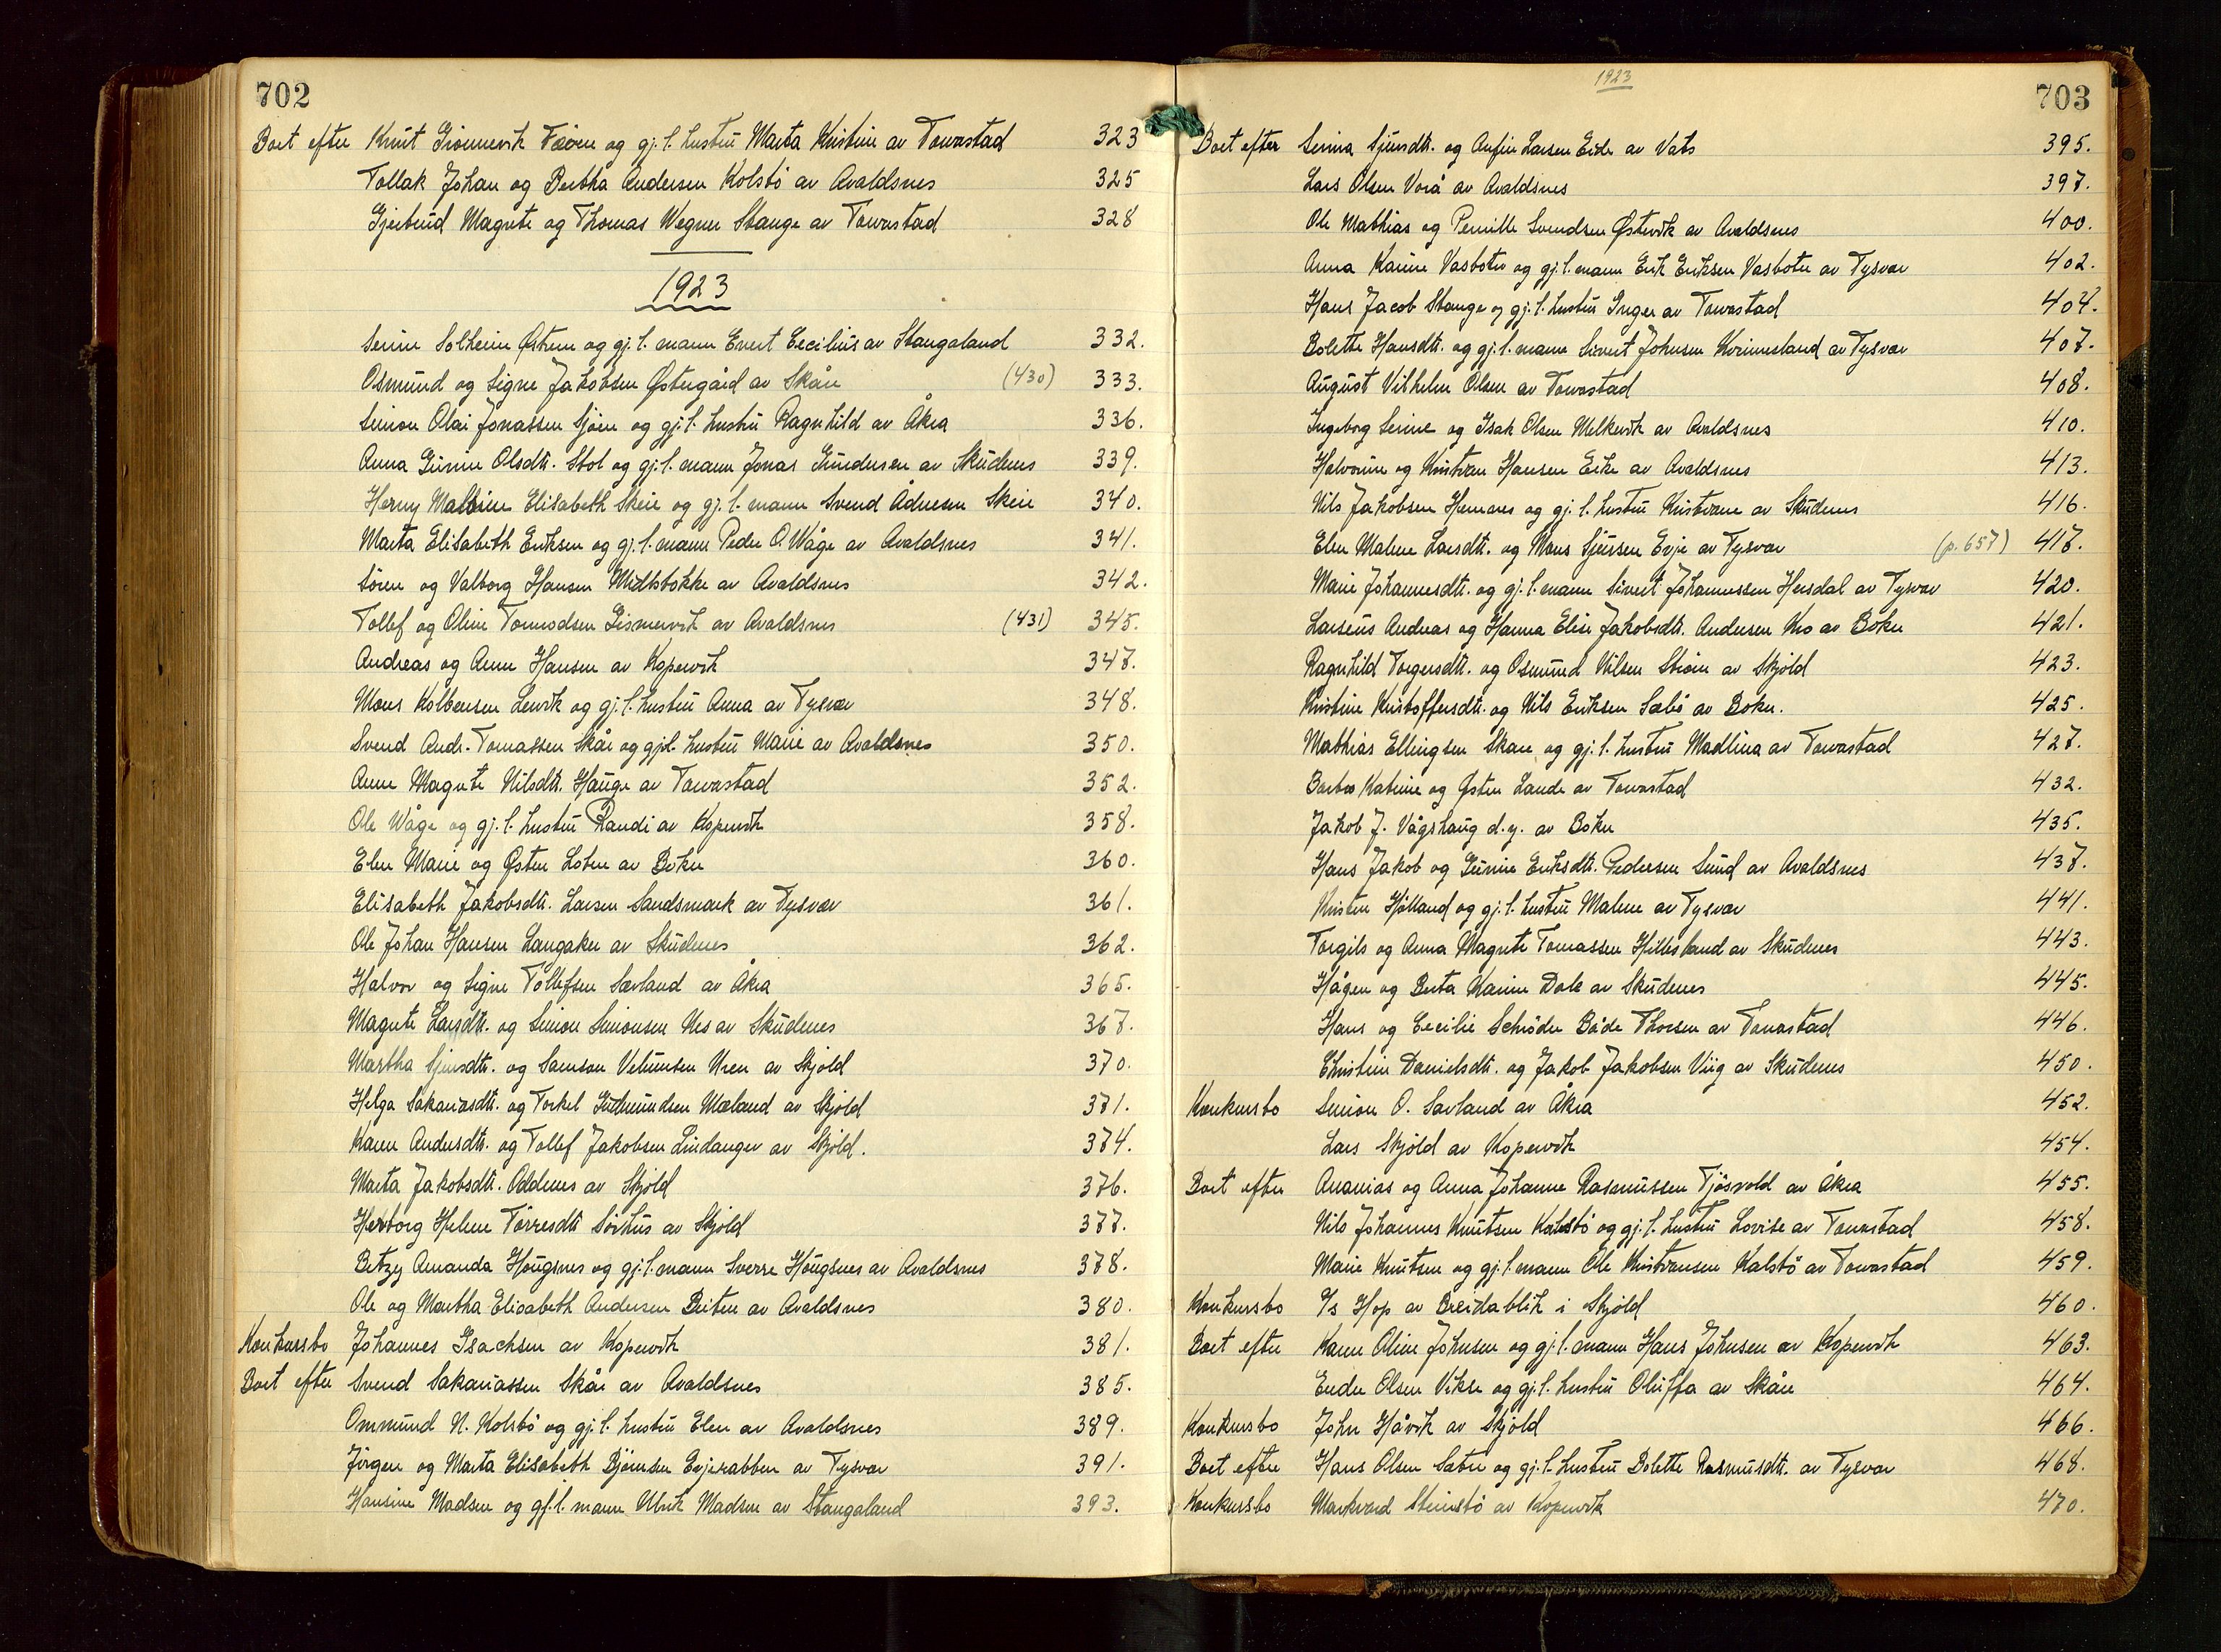 702
Boet efter Knut Grønnevik Fæøen og gj. l. hustru Marta Kristine av Torvastad 323
Tollak Johan og Bertha Andersen Kolstö av Avaldsnes 325
Gjertrud Magrete og Thomas Wegner Stange av Torvastad 328
1923
Serine Solheim Östrem og gj. l. mann Evert Cecilius av Stangaland 332.
Osmund og Signe Jakobsen Östergård av Skåre (430) 333.
Simon Olai Jonassen Sjöen og gj. l. hustru Ragnhild av Åkra 336.
Anna Gurine Olsdtr. Stol og gj. l. mann Jonas Gundersen av Skudenes 339.
Henny Malvine Elisabeth Skeie og gj. l. mann Svend Ådnesen Skeie 340.
Marta Elisabeth Eriksen og gj. l. mann Peder O. Wåge av Avaldsnes 341.
Sören og Valborg Hansen Midtstokke av Avaldsnes 342.
Tollef og Oline Tormodsen Gismervik av Avaldsnes (431) 345.
Andreas og Anne Hansen av Kopervik 347.
Mons Kolbensen Lervik og gj. l. hustru Anna av Tysvær 348.
Svend Andr. Tomassen Skår og gj.l. hustru Marie av Avaldsnes 350.
Anne Magrete Nilsdtr. Hauge av Torvastad 352.
Ole Wåge og gj. l. hustru Randi av Kopervik 358.
Elen Marie og Östen Loten av Bokn 360.
Elisabeth Jakobsdtr. Larsen Sandsmark av Tysvær 361.
Ole Johan Hansen Langaker av Skudenes 362.
Halvor og Signe Tollefsen Sævland av Åkra 365.
Magrete Larsdtr. og Simon Simonsen Nes av Skudenes 367.
Martha Sjursdtr. og Samson Velumsen Uren av Skjold 370.
Helga Sakariasdtr. og Torkel Gudmundsen Mæland av Skjöld 371.
Karen Andersdtr. og Tollef Jakobsen Lindanger av Skjöld. 374.
Marta Jakobsdtr. Oddenes av Skjöld 376.
Herborg Helene Torresdtr Sörhus av Skjöld 377.
Betzy Amanda Höugsnes og gj. l. mann Sverre Höugsnes av Avaldsnes 378.
Ole og Martha Elisabeth Andersen Breiten av Avaldsnes 380.
Konkursbo Johannes Isachsen av Kopervik 381.
Boet efter Svend Sakariassen Skår av Avaldsnes 385.
Ommund N. Kolstö og gj. l. hustru Elen av Avaldsnes 389.
Jörgen og Marta Elisabeth Björnsen Evjerabben av Tysvær 391.
Hansine Madsen og gj. l. mann Ulrik Madsen av Stangaland 393.
1923
703
Boet efter Serina Sjursdtr. og Anfin Larsen Eide av Vats 395.
Lars Olsen Vorå av Avaldsnes 397.
Ole Mathias og Pernille Svendsen Østevik av Avaldsnes 400.
Anna Karine Vasbotn og gj. l. mann Erik Eriksen Vasbotn av Tysvær 402.
Hans Jacob Stange og gj. l. hustru Inger av Torvastad 404.
Bolette Hansdtr. og gj. l. mann Sivert Johnsen Kvinnesland av Tysvær 407.
August Vilhelm Olsen av Torvastad 408.
Ingeborg Serine og Isak Olsen Melkevik av Avaldsnes 410.
Halvorine og Kristian Hansen Eike av Avaldsnes 413.
Nils Jakobsen Hemnes og gj. l. hustru Kristiane av Skudenes 416.
Elen Malene Larsdtr. og Mons Sjursen Evje av Tysvær (p. 657) 417.
Marie Johannesdtr. og gj. l. mann Sivert Johannessen Hersdal av Tysvær 420.
Larsius Andreas og Hanna Elise Jakobsdtr. Andersen Kro av Bokn 421.
Ragnhild Torgersdtr. og Osmund Nilsen Stråm av Skjöld 423.
Kristine Kristoffersdtr. og Nils Eriksen Sæbö av Bokn. 425.
Mathias Ellingsen Skare og gj. l. hustru Madlina av Torvastad 427.
Barbro Katrine og Østen Lande av Torvastad 432.
Jakob J. Vågshaug d.y. av Bokn 435.
Hans Jakob og Gurine Eriksdtr. Pedersen Sund av Avaldsnes 437.
Kristen Hjölland og gj. l. hustru Malene av Tysvær 441.
Torgils og Anna Magrete Tomassen Hillesland av Skudenes 443.
Hågen og Berta Karine Dale av Skudenes 445.
Hans og Cecilie Schröder Både Thorsen av Torvastad 446.
Christine Danielsdtr. og Jakob Jakobsen Viig av Skudenes 450.
Konkursbo Simon O. Sævland av Åkra 452.
Lars Skjöld av Kopervik 454.
Boet efter Ananias og Anna Johanne Rasmussen Tjösvold av Åkra 455.
Nils Johannes Knutsen Kalstö og gj. l. hustru Lovise av Torvastad 458.
Marie Knutsen og gj. l. mann Ole Kristiansen Kalstö av Torvastad 459.
Konkursbo I/s Hop av Breidablik i Skjöld 460.
Boet efter Karen Oline Johnsen og gj. l. mann Hans Johnsen av Kopervik 463.
Endre Olsen Vikse og gj. l. hustru Oluffa av Skåre 464.
Konkursbo John Håvik av Skjöld 466.
Boet efter Hans Olsen Sætre og gj. l. hustru Bolette Rasmusdtr. av Tysvær 468.
Konkursbo Markvard Steinstö av Kopervik 470.